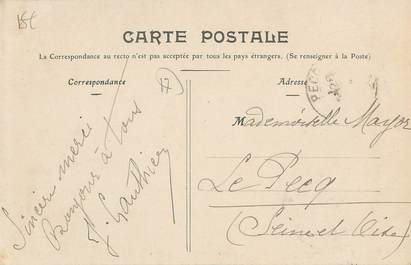 CARTE POSTALE
La Correspondance au recto n'est pas acceptée par tous les pays étrangers. (Se renseigner à la Poste)
Correspondance
Sincère merci
Bonjour à tous
J. Gauthier
Adresse
Mademoiselle Mayor
Le Pecq
(Seine et Oise)